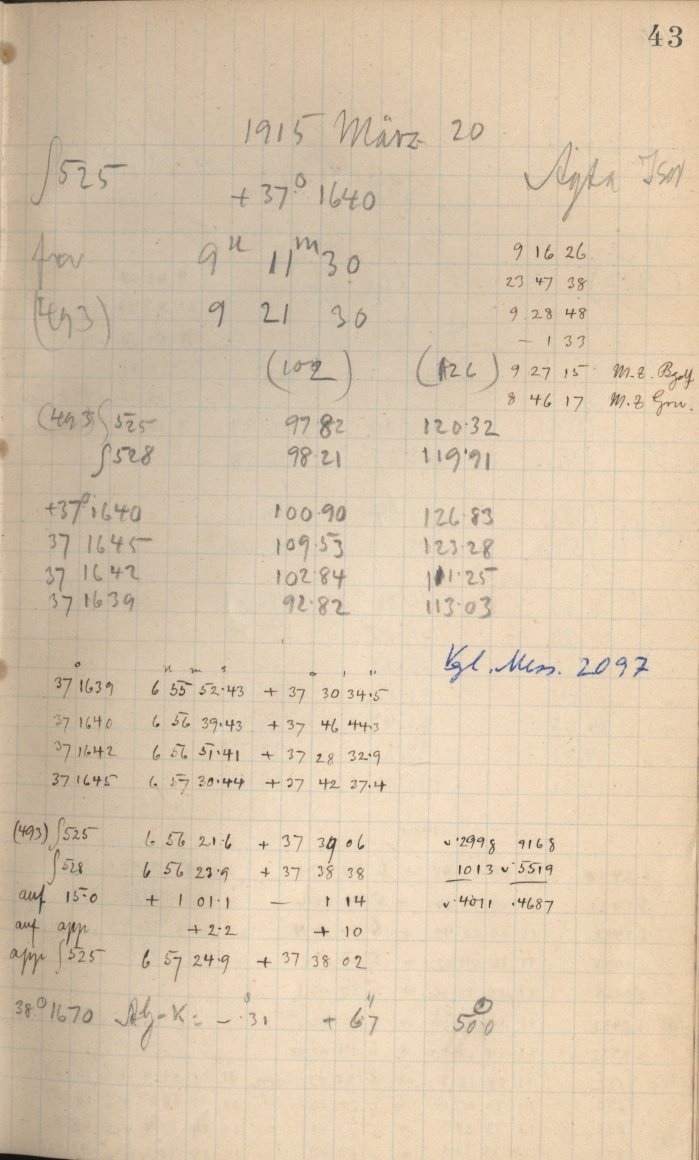 43
1915 März 20
∫525 +37° 1640
9h 11m 30
(493) 9 21 30
9 16 26
23 47 38
9 28 48
– 1 33
9 27 15 M.Z.
8 46 17 M.Z
(102) (126)
(493) ∫525 97.82 120.32
∫528 98.21 119.91
+37° 1640 100.90 126.83
37 1645 109.53 123.28
37 1642 102.84 111.25
37 1639 92.82 113.03
Vgl. Mess. 2097
37° 1639 6h 55m 52s.43 + 37° 30' 34".5
37 1640 6 56 39.43 + 37 46 44.3
37 1642 6 56 51.41 + 37 28 32.9
37 1645 6 57 30.44 + 37 42 37.4
(493) ∫525 6 56 21.6 + 37 39 06 .2998 9168
∫528 6 56 23.9 + 37 38 38 1013 .5519
auf 15.0 + 1 01.1 – 1 14 .4011 .4687
auf app + 2.2 + 10
app ∫525 6 57 24.9 + 37 38 02
38° 1670 – s.31 + 6".7